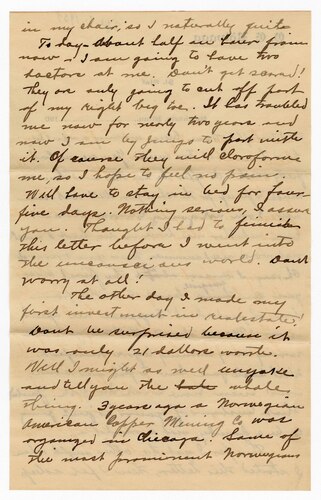 in my chair, so I naturally quite
To day about half an hour from
now – I am going to have two
doctors at me. Don't get scared!
They are only going to cut off part
of my right big toe. It has troubled
me now for nerly two years and
now I am by jingo to part with
it. Of course they will cloroforme
me, so I hope to feel no pain.
Will have to stay in bed for four-
five days. Nothing serious, I assure
you. Thought I had to finish
this letter before I went into
the unconscious world. Dont
worry at all!
The other day I made my
first investment in realestate
Dont be surprised because it
was only 21 dollars worth.
Well I might as well
and tell you the whole
thing. 3 years ago a Norwegian
American Copper Mining Co was
organized in Chicago. Some of
the most prominent Norwegians